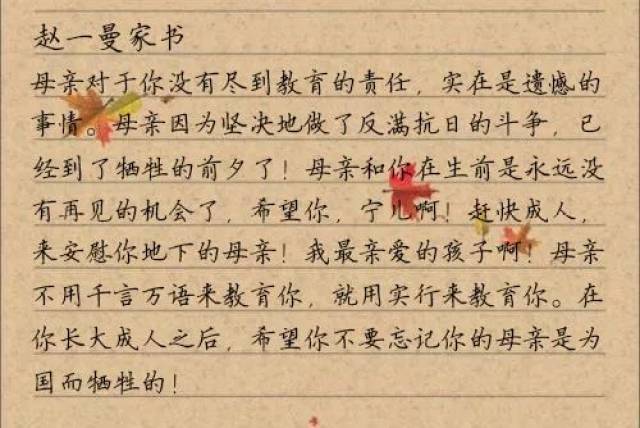 赵一曼家书
母亲对于你没有尽到教育的责任，实在是遗憾的
事情。母亲因为坚决地做了反满抗日的斗争，已
经到了牺牲的前夕了！母亲和你在生前是永远没
有再见的机会了，希望你，宁儿啊！赶快成人，
来安慰你地下的母亲！我最亲爱的孩子啊！母亲
不用千言万语来教育你，就用实行来教育你。在
你长大成人之后，希望你不要忘记你的母亲是为
国而牺牲的！